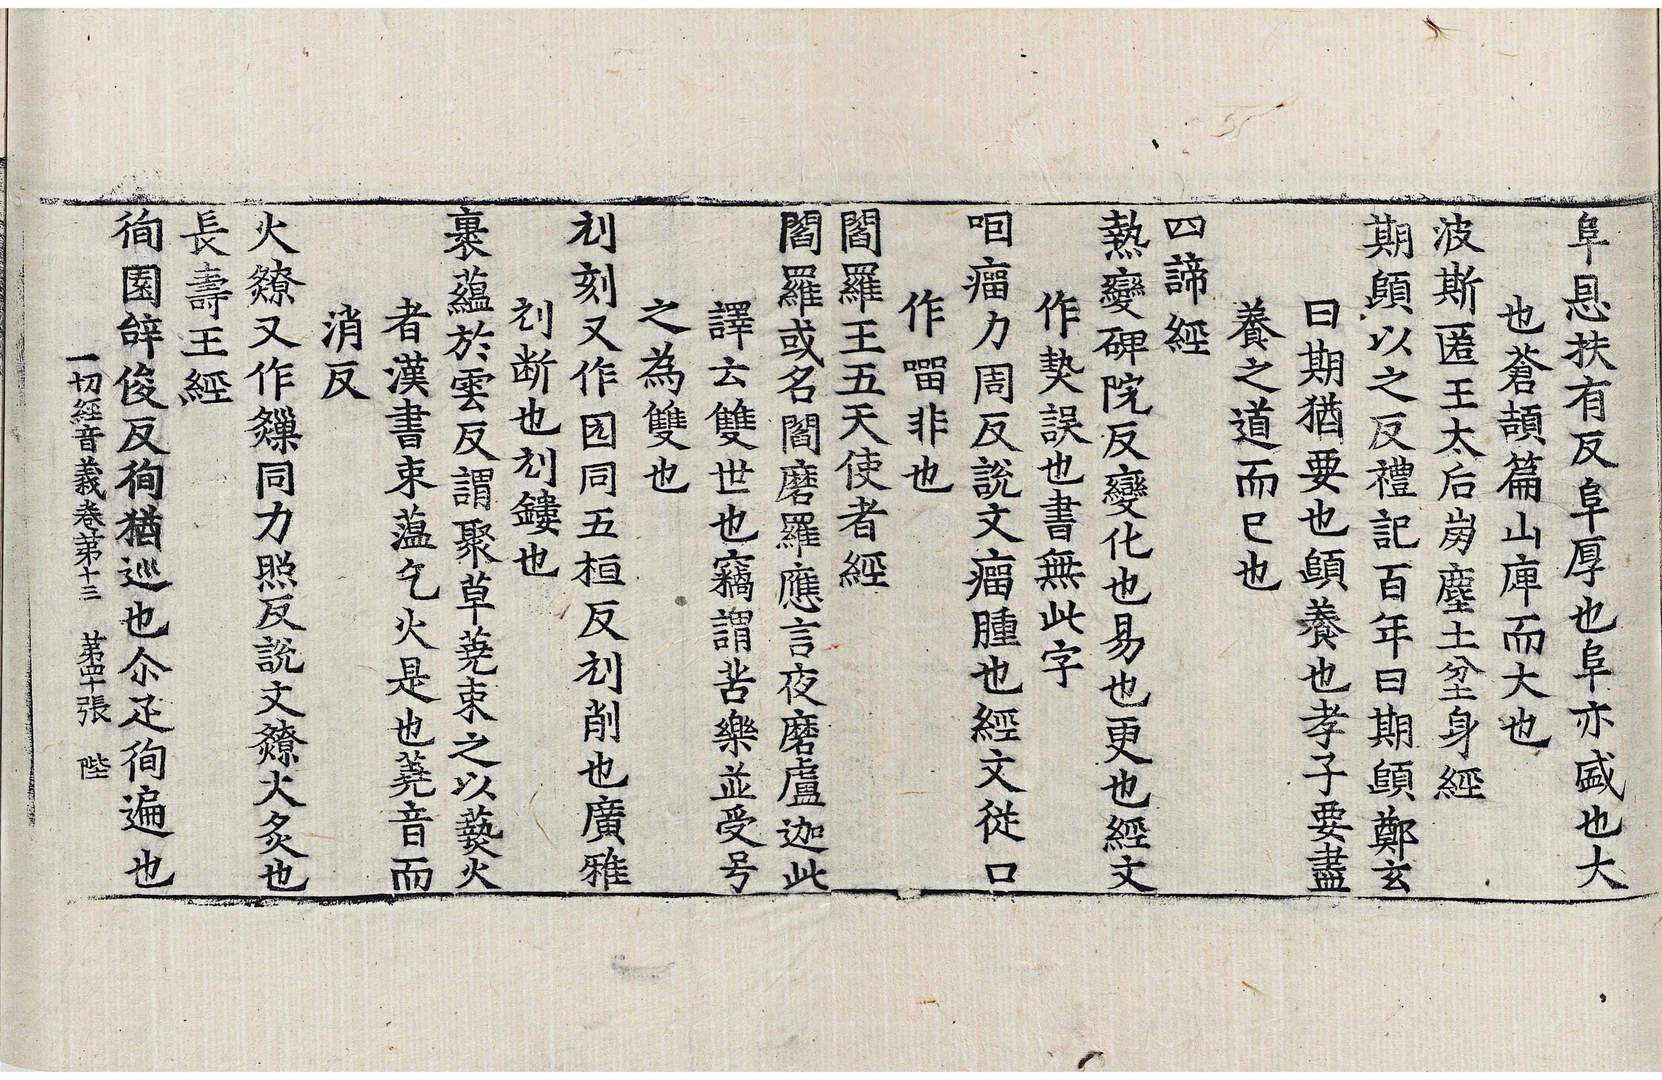 阜恩扶有反阜厚也阜亦盛也大
也蒼頡篇山庳而大也
波斯匿王太后崩塵土坌身經
期頤以之反禮記百年曰期頤鄭玄
曰期猶要也頤養也孝子要盡
養之道而已也
四諦經
熱變碑院反變化也易也更也經文
作㷅誤也書無此字
㖎瘤力周反說文瘤腫也經文從口
作㽞非也
閻羅王五天使者經
閻羅或名閻磨羅應言夜磨盧迦此
譯云雙世也竊謂苦樂並受号
之為雙也
刓刻又作园同五桓反刓削也廣雅
刓断也刓鏤也
裹蘊於雲反謂聚草蕘束之以爇火
者漢書束薀乞火是也蕘音而
消反
火燎又作𤒪同力照反說文燎火炙也
長壽王經
徇園辝俊反徇猶巡也尒疋徇遍也
一切經音義卷第十三 第四十張 陛